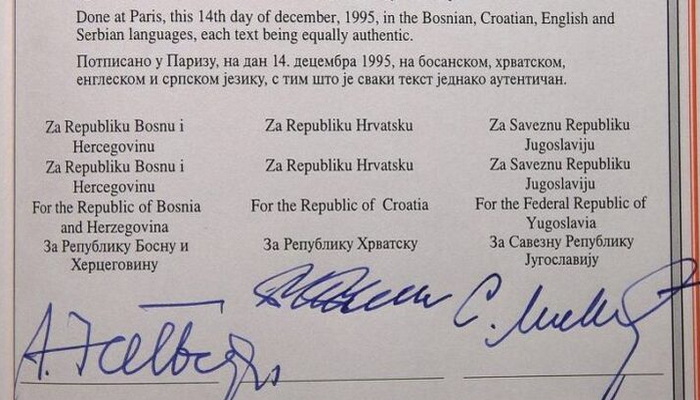 Done at Paris, this 14th day of december, 1995, in the Bosnian, Croatian, English and
Serbian languages, each text being equally authentic.
Потписано у Паризу, на дан 14. децембра 1995, на босанском, хрватском,
енглеском и српском језику, с тим што је сваки текст једнако аутентичан.
Za Republiku Bosnu i
Hercegovinu
Za Republiku Bosnu i
Hercegovinu
For the Republic of Bosnia
and Herzegovina
За Републику Босну и
Херцеговину
Za Republiku Hrvatsku
Za Republiku Hrvatsku
For the Republic of Croatia
За Републику Хрватску
Za Saveznu Republiku
Jugoslaviju
Za Saveznu Republiku
Jugoslaviju
For the Federal Republic of
Yugoslavia
За Савезну Републику
Југославију